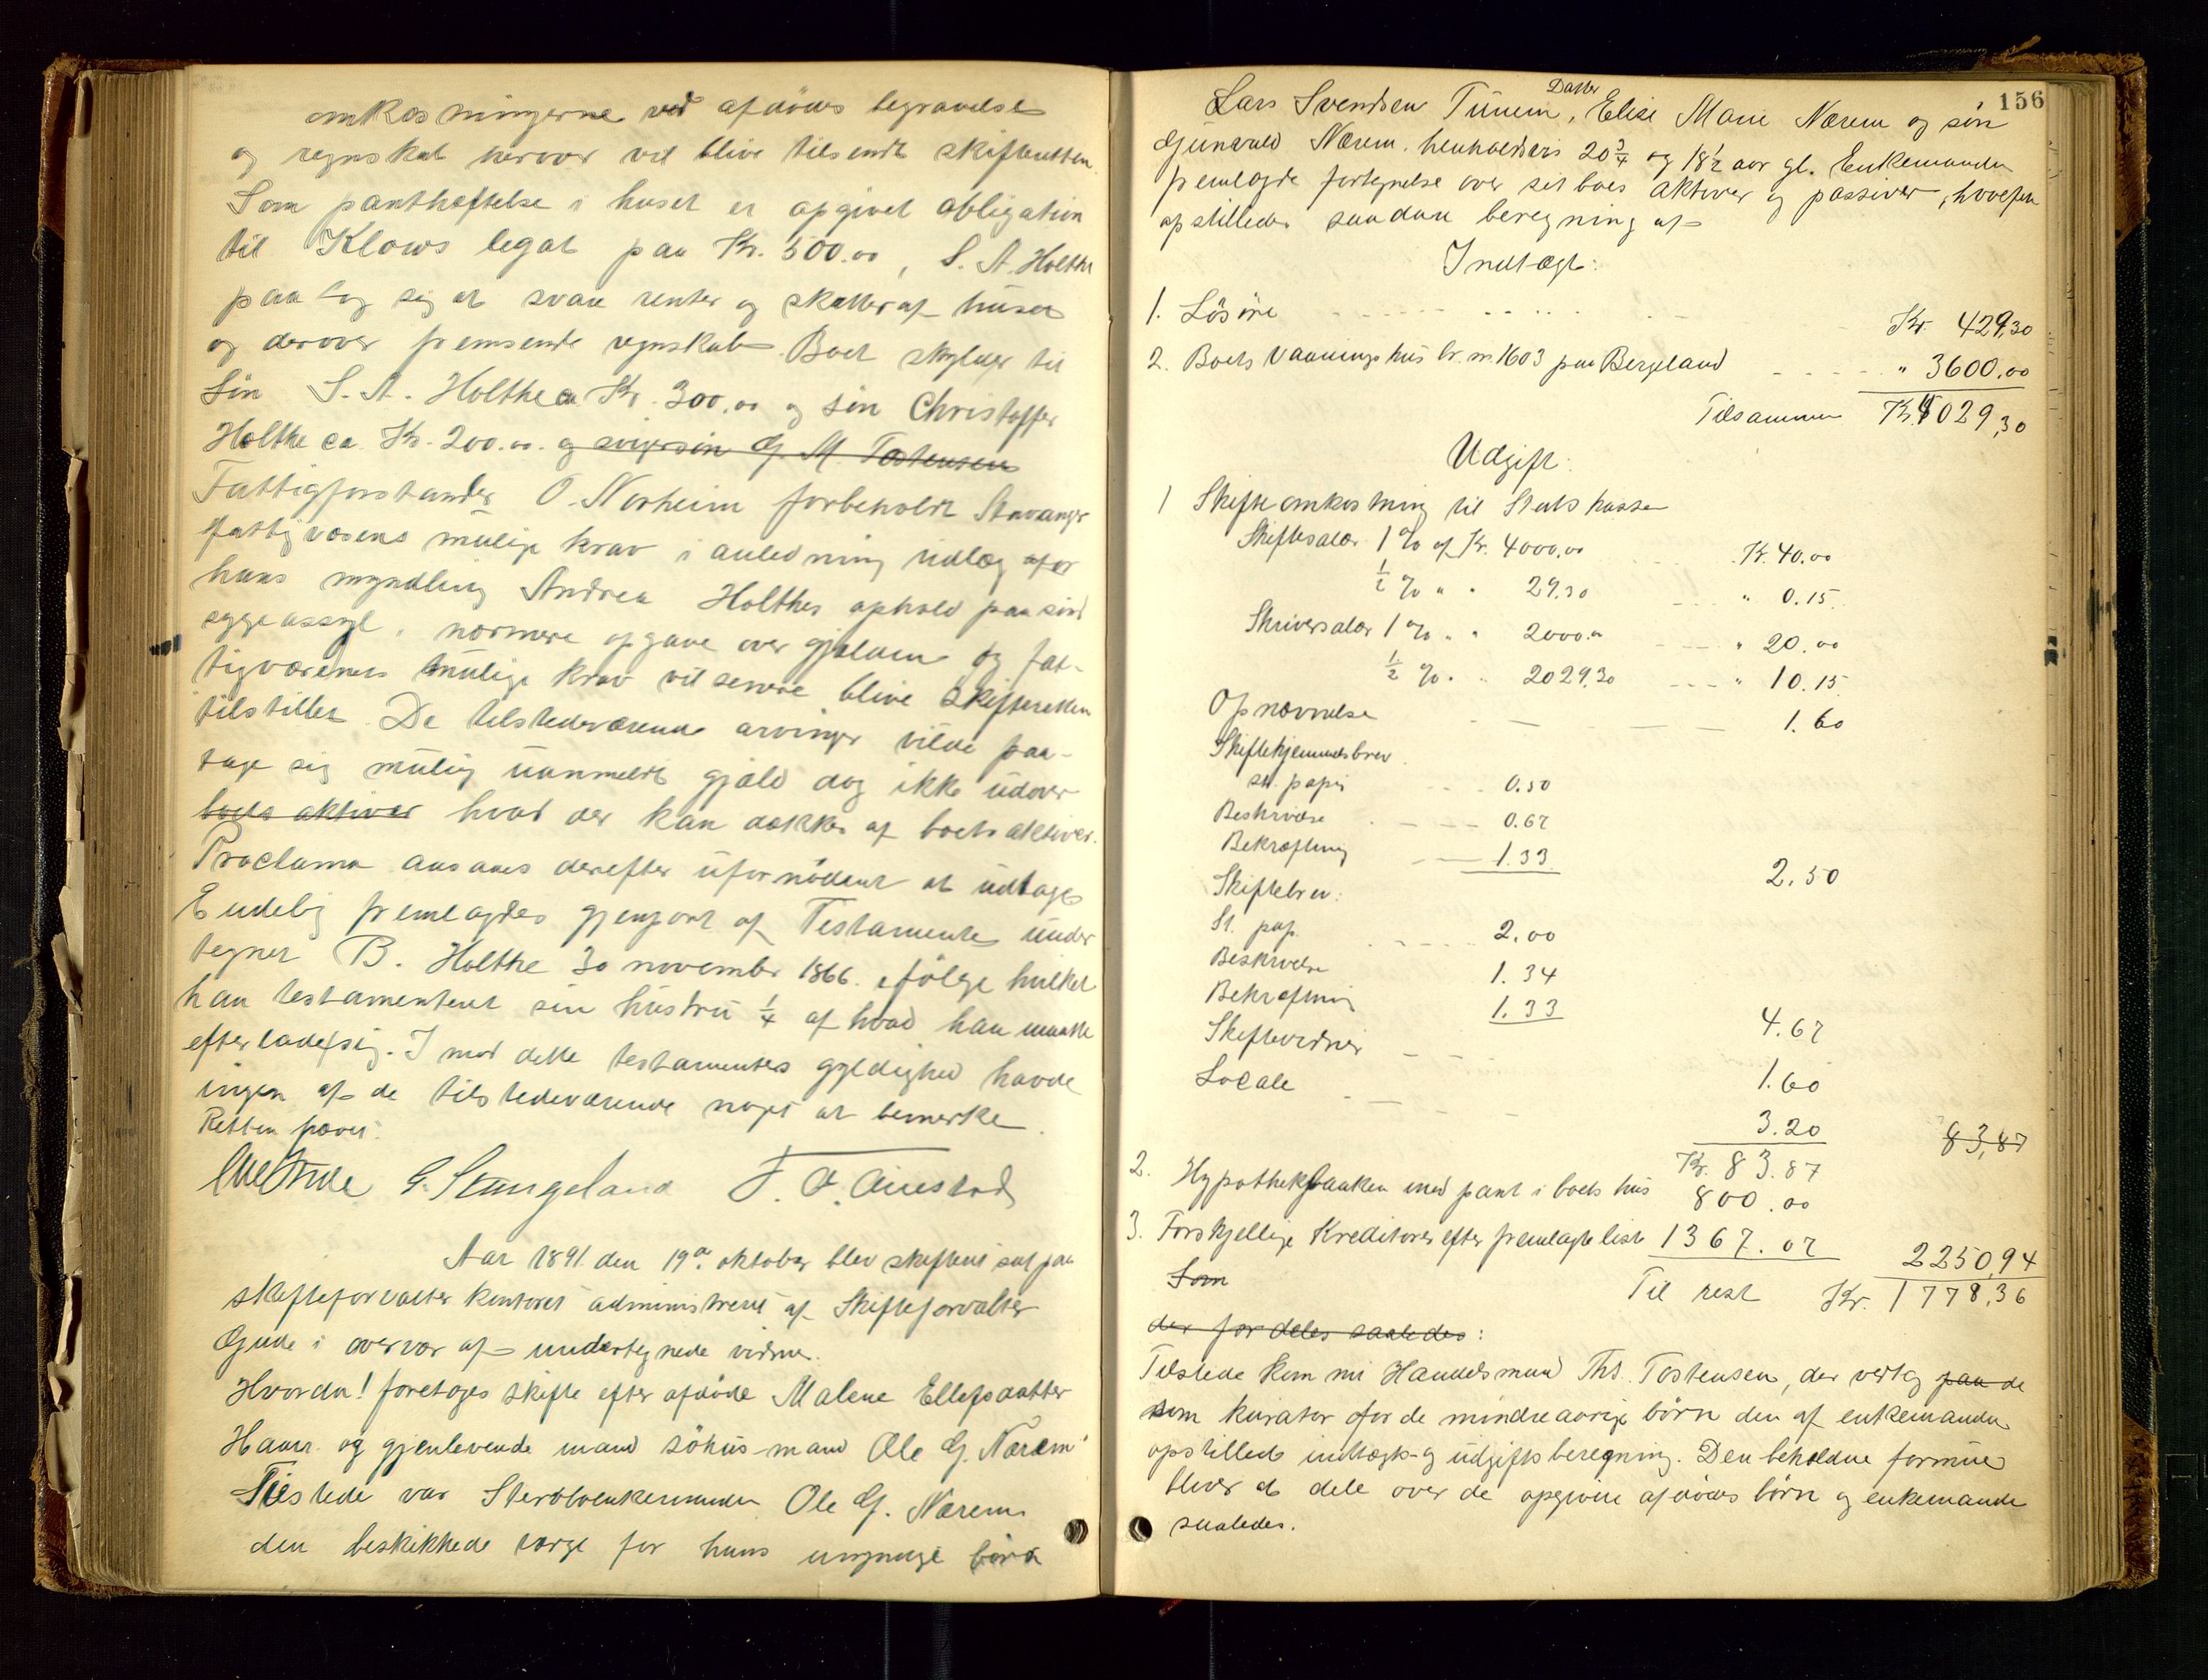 omkostningerne ved afdødes begravelse
og regnskab herover vil blive tilsendt skifteretten.
Som panthæftelse i huset er opgivet obligation
til Klows legat paa Kr. 500.00, S. A. Holthe
paatog sig at svare renter og skatter af huset
og derover fremsende regnskab. Boet skylder til
Søn S. A. Holthe ca Kr. 300.00 og søn Christoffer
Holthe ca. Kr. 200.00. og svigersøn G. M. Tostensen
Fattigforstander O. Norheim forbeholdt Stavanger
fattigvæsens mulige krav i anledning udlæg for
hans myndling Andrea Holthes ophold paa sind
sygeassyl, nærmere opgave over gjælden og fat-
tigvæsenets mulige krav vil senere blive skifteretten
tilstillet. De tilstedeværende arvinger vilde paa-
tage sig mulig uanmeldt gjæld dog ikke udover
boets aktiver hvad der kan dækkes af boets aktiver.
Proclama ansaaes derefter ufornødent at udtages
Endelig fremlagdes gjenpart af Testamente under
tegnet B. Holthe 30 november 1866. ifølge hvilket
han testamenteret sin hustru 1/4 af hvad han maatte
efterlade sig. Imod dette testamentets gyldighed havde
ingen af de tilstedeværende noget at bemerke.
Retten hævet.
G. Stangeland F. O. Auestad
Aar 1891 den 19de oktober blev skifteret sat paa
skifteforvalterkontoret administreret af Skifteforvalter
Gude i overvær af undertegnede vidner.
Hvorda! foretoges skifte efter afdøde Malene Ellefsdatter
Haar og gjenlevende mand søhus-mand Ole G. Nærem
Tilstede var Sterbboenkemanden Ole G. Nærem
den beskikkede værge for hans umyndige børn
156
Datter
Lars Svendsen Tunem, Elise Marie Nærem og søn
Gunvald Nærem. henholdsvis 20 3/4 og 18 1/2 aar gl. Enkemanden
fremlagde fortegnelse over sit boes aktiver og passiver, hvorefter
opstilledes saadan beregning af
Indtægt:
1. Løsøre Kr. 429,30
2. Boets Vaaningshus br. nr. 1603 paa Bergeland " 3600.00
Tilsammen Kr. 4029,30
Udgift:
1 Skifteomkostning til Statskassen
Skiftesalær 1 % af Kr. 4000.00 Kr. 40.00
1/2 % " " 29.30 " 0.15
Skriversalær 1 % " " 2000.00 " 20.00
1/2 % " " 2029.30 " 10.15
Opnævnelse 1.60
Skiftehjemmelsbrev
st. papir 0.50
Beskrivelse 0.67
Bekræftning 1.33 2.50
Skiftebrev:
St. pap. 2.00
Beskrivelse 1.34
Bekræftning 1.33 4.67
Skiftevidner 1.60
Locale 3.20
Kr. 83.87 83,87
2. Hypothekbanken med pant i boets hus 800.00
3. Forskjellige Kreditorer efter fremlagte liste 1367.07 2250,94
Som
Til rest Kr. 1778,36
der fordeles saaledes:
Tilstede kom nu Handelsmand Ths. Tostensen, der vedtog paa de
som kurator for de mindreaarige børn den af enkemanden
opstillede indtægts- og udgiftsberegning. Den beholdne formue
bliver at dele over de opgivne afdødes børn og enkemanden
saaledes.